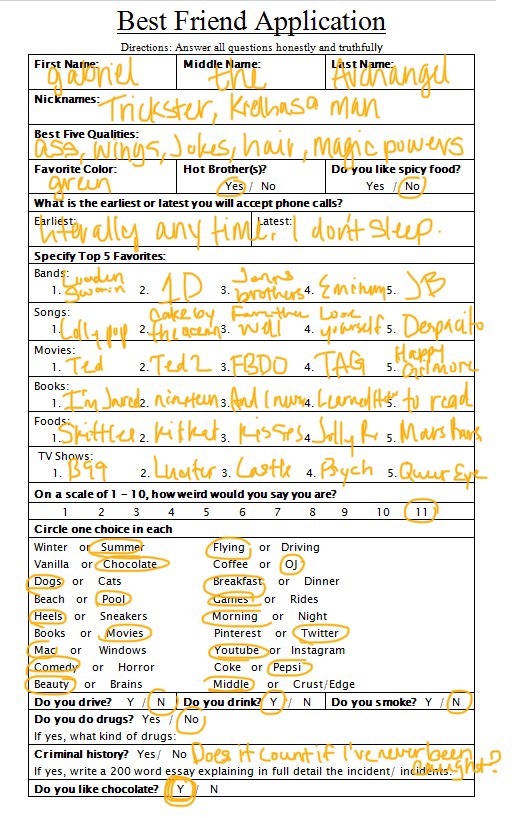 Best Friend Application
Directions: Answer all questions honestly and truthfully
First Name: gabriel Middle Name: the Last Name: Archangel
Nicknames: Trickster, Kielbasa man
Best Five Qualities:
ass, wings, Jokes, hair, magic powers
Favorite Color: green Hot Brother(s)? Yes / No Do you like spicy food? Yes / No
What is the earliest or latest you will accept phone calls?
Earliest: Latest:
literally any time. I don't sleep.
Specify Top 5 Favorites:
Bands:
1. Louden Swain 2. 1D 3. Jonas brothers 4. Eminem 5. JB
Songs:
1. Lollypop 2. Cake by the ocean 3. Well 4. Love yourself 5. Despacito
Movies:
1. Ted 2. Ted 2 3. FBDO 4. TAG 5. Happy Gilmore
Books:
1. I'm Jared 2. nineteen 3. And I never 4. Learned 5. to read
Foods:
1. Skittles 2. kitkat 3. kisses 4. Jolly R 5. Mars Bars
TV Shows:
1. B99 2. Lucifer 3. Castle 4. Psych 5. Queer Eye
On a scale of 1 – 10, how weird would you say you are?
1 2 3 4 5 6 7 8 9 10 11
Circle one choice in each
Winter or Summer Flying or Driving
Vanilla or Chocolate Coffee or OJ
Dogs or Cats Breakfast or Dinner
Beach or Pool Games or Rides
Heels or Sneakers Morning or Night
Books or Movies Pinterest or Twitter
Mac or Windows Youtube or Instagram
Comedy or Horror Coke or Pepsi
Beauty or Brains Middle or Crust/Edge
Do you drive? Y / N Do you drink? Y / N Do you smoke? Y / N
Do you do drugs? Yes / No
If yes, what kind of drugs:
Criminal history? Yes/ No Does it count if I've never been caught?
If yes, write a 200 word essay explaining in full detail the incident/ incidents:
Do you like chocolate? Y / N